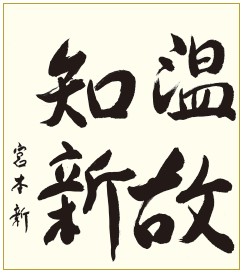 温故
知新
宮本新